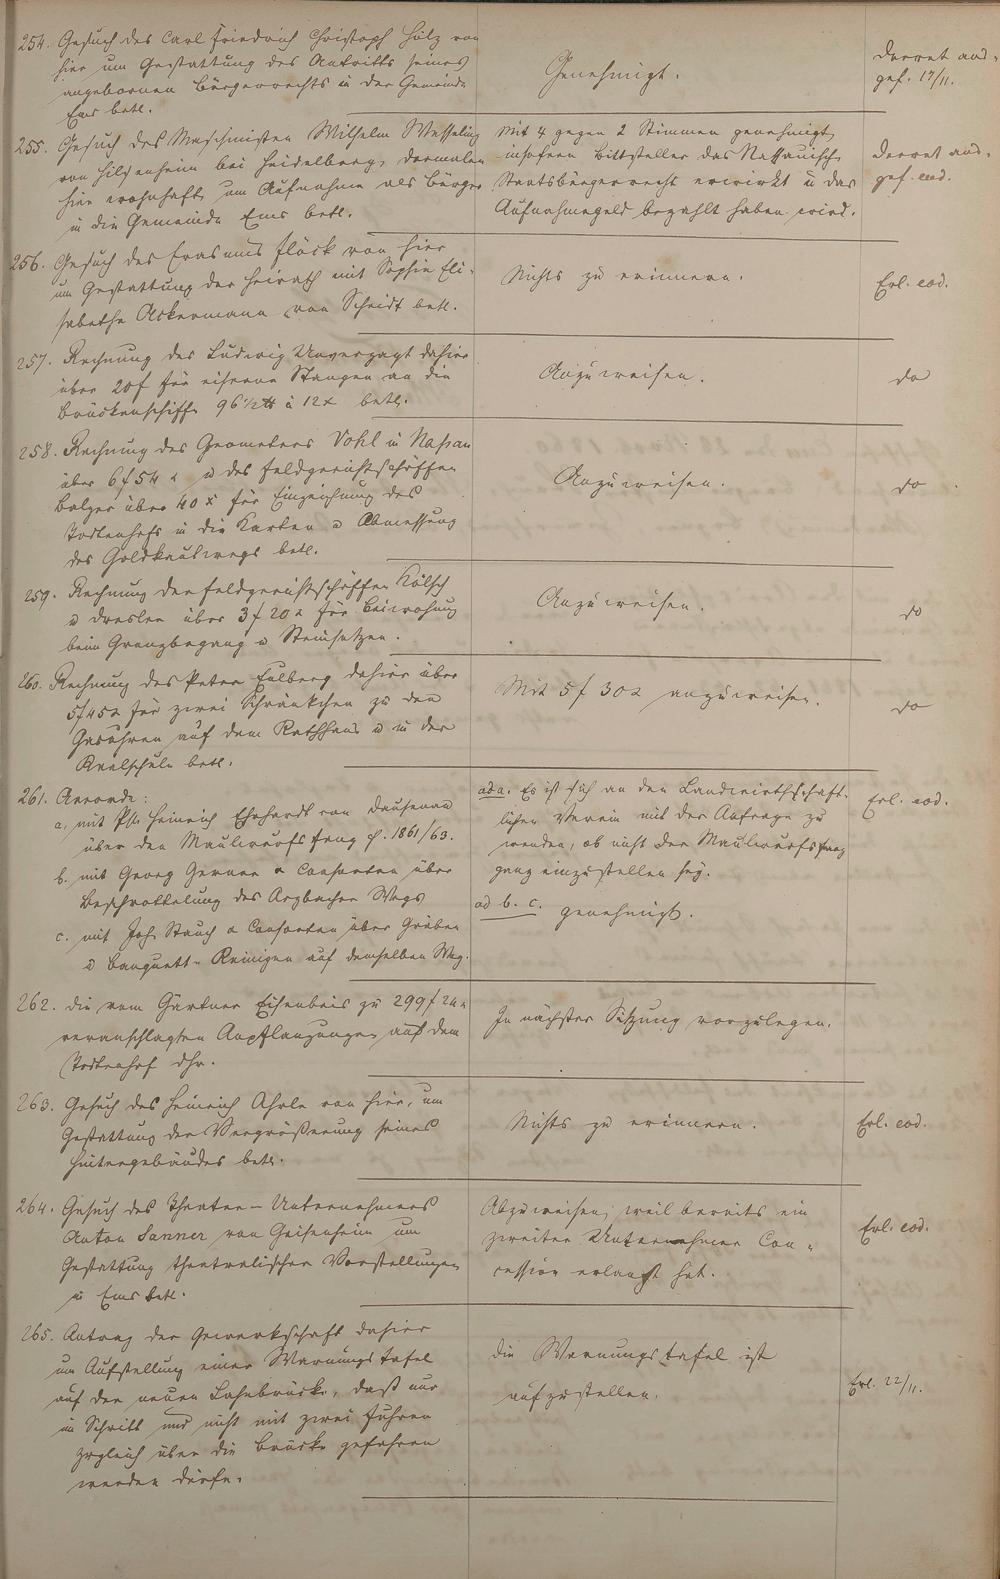 254. Gesuch des Carl Friedrich Christoph Hölz von
hier um Gestattung des Antritts seines
angebornen Bürgerrechts in der Gemeinde
Ems betr.
Genehmigt.
Decret aus-
gef. 17/11.
255. Gesuch des Maschinisten Wilhelm Wesseling
von bei Heidelberg, dermalen
hier wohnhaft, um Aufnahme als Bürger
in die Gemeinde Ems betr.
Mit 4 gegen 2 Stimmen genehmigt,
insofern Bittsteller das Nassauische
Staatsbürgerrecht erwirkt u das
Aufnahmegeld bezahlt haben wird.
Decret aus-
gef. eod.
256. Gesuch des Erasmus Flöck von hier
um Gestattung der Heirath mit Sophie Eli-
sabethe Ackermann von Scheidt betr.
Nichts zu erinnern.
Erl. eod.
257. Rechnung des Ludwig Unverzagt dahier
über 20f für eiserne Stangen an die
Brückenschiffe 96 1/2 ℔ à 12x betr.
Anzuweisen.
do
258. Rechnung des Geometers Vohl in Nassau
über 6f 54x u des Feldgerichtsschöffen
Balzer über 40x für Einzeichnung des
Todtenhofs in die Karten u Abmessung
des betr.
Anzuweisen.
do
259. Rechnung der Feldgerichtsschöffen Kölsch
u Dresler über 3f 20x für Beiwohnung
beim Grenzbegang u Steinsetzen.
Anzuweisen.
do
260. Rechnung des Peter Eulberg dahier über
5f 45x für zwei Schränkchen zu den
Gasuhren auf dem Rathhaus u in der
Realschule betr.
Mit 5f 30x anzuweisen.
do
261. Accorde:
a, mit Heinrich Ehrhardt von Dausenau
über den Maulwurfsfang p. 1861/63.
b. mit Georg Gerner & Consorten über
Beschrottelung des Arzbacher Wegs
c. mit Joh. Stauch & Consorten über Gräben
u Banquett-Reinigen auf demselben Weg.
ad a. Es ist sich an den Landwirthschaft-
lichen Verein mit der Anfrage zu
wenden, ob nicht der Maulwurfsfang
ganz einzustellen sey.
ad b. c. genehmigt.
Erl. eod.
262. Die vom Gärtner Eisenbeis zu 299f 24x
veranschlagten Anpflanzungen auf dem
Todtenhof dhr.
In nächster Sitzung vorzulegen.
263. Gesuch des Heinrich Ahrle von hier, um
Gestattung der Vergrößerung seines
Hintergebäudes betr.
Nichts zu erinnern.
Erl. eod.
264. Gesuch des Theater-Unternehmers
Anton Sanner von Geisenheim um
Gestattung theatralischer Vorstellungen
in Ems betr.
Abzuweisen, weil bereits ein
zweiter Unternehmer Con-
cession erlangt hat.
Erl. eod.
265. Antrag der Gewerkschaft dahier
um Aufstellung einer Warnungstafel
auf der neuen Lahnbrücke, daß nur
im Schritt und nicht mit zwei Fuhren
zugleich über die Brücke gefahren
werden dürfe.
Die Warnungstafel ist
aufzustellen.
Erl. 22/11.